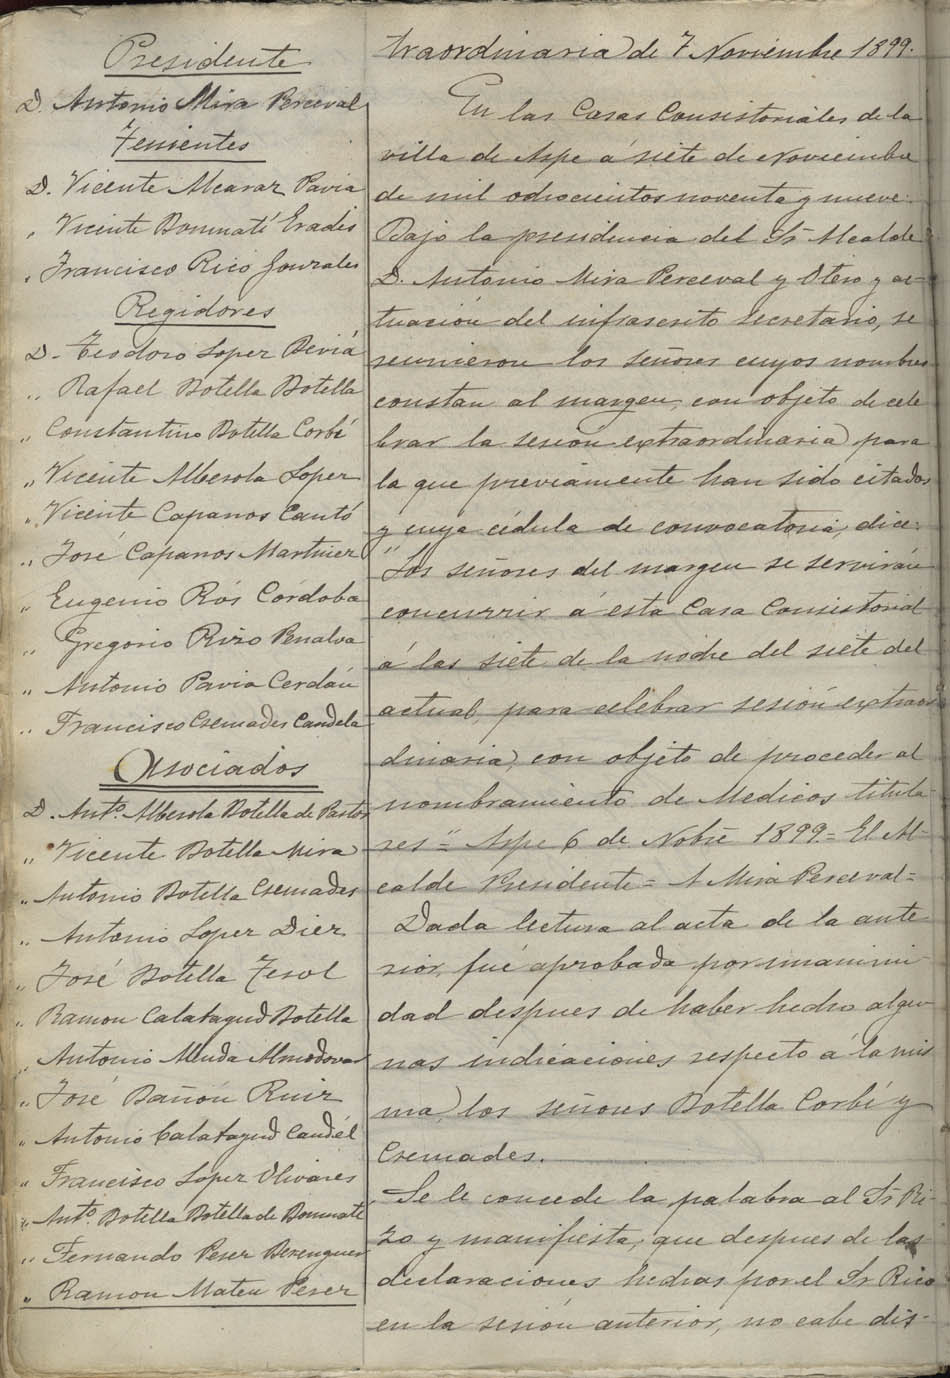 Presidente
D. Antonio Mira Perceval
Tenientes
D. Vicente Alcaraz Pavia
" Vicente Bonmatí Eradis
" Francisco Rico Gonzales
Regidores
D. Teodoro Lopez Deviá
" Rafael Botella Botella
" Constantino Botella Corbí
" Vicente Alberola Lopez
" Vicente Caparros Cantó
" José Caparros Martinez
" Eugenio Rós Cordoba
" Gregorio Rizo Penalva
" Antonio Pavia Cerdán
" Francisco Cremades Candela
Asociados
D. Antº. Alberola Botella de Pastor
" Vicente Botella Mira
" Antonio Botella Cremades
" Antonio Lopez Diez
" José Botella Tesol
" Ramon Calatayud Botella
" Antonio Almodovar
" José Bañón Ruiz
" Antonio Calatayud Candél
" Francisco Lopez Olivares
" Antº. Botella Botella de Bonmatí
" Fernando Perez Berenguer
" Ramon Mateu Perez
traordinaria de 7 Noviembre 1899.
En las Casas Consistoriales de la
villa de Aspe á siete de Noviembre
de mil ochocientos noventa y nueve:
Bajo la presidencia del Sr Alcalde
D. Antonio Mira Perceval y Otero y ac-
tuación del infrascrito secretario, se
reunieron los señores cuyos nombres
constan al margen, con objeto de cele
brar la sesion extraordinaria para
la que previamente han sido citados
y cuya cédula de convocatoria, dice:
"Los señores del margen se servirán
concurrir á esta Casa Consistorial
á las siete de la noche del siete del
actual, para celebrar sesión extraor
dinaria, con objeto de proceder al
nombramiento de Medicos titula
res" = Aspe 6 de Nobre 1899. = El Al-
calde Presidente = A Mira Perceval =
Dada lectura al acta de la ante
rior, fué aprobada por unanimi
dad despues de haber hecho algu
nas indicaciones respecto á la mis
ma, los señores Botella Corbí y
Cremades.
Se le concede la palabra al Sr Ri-
zo y manifiesta, que despues de las
declaraciones hechas por el Sr Rico
en la sesión anterior, no cabe dis-